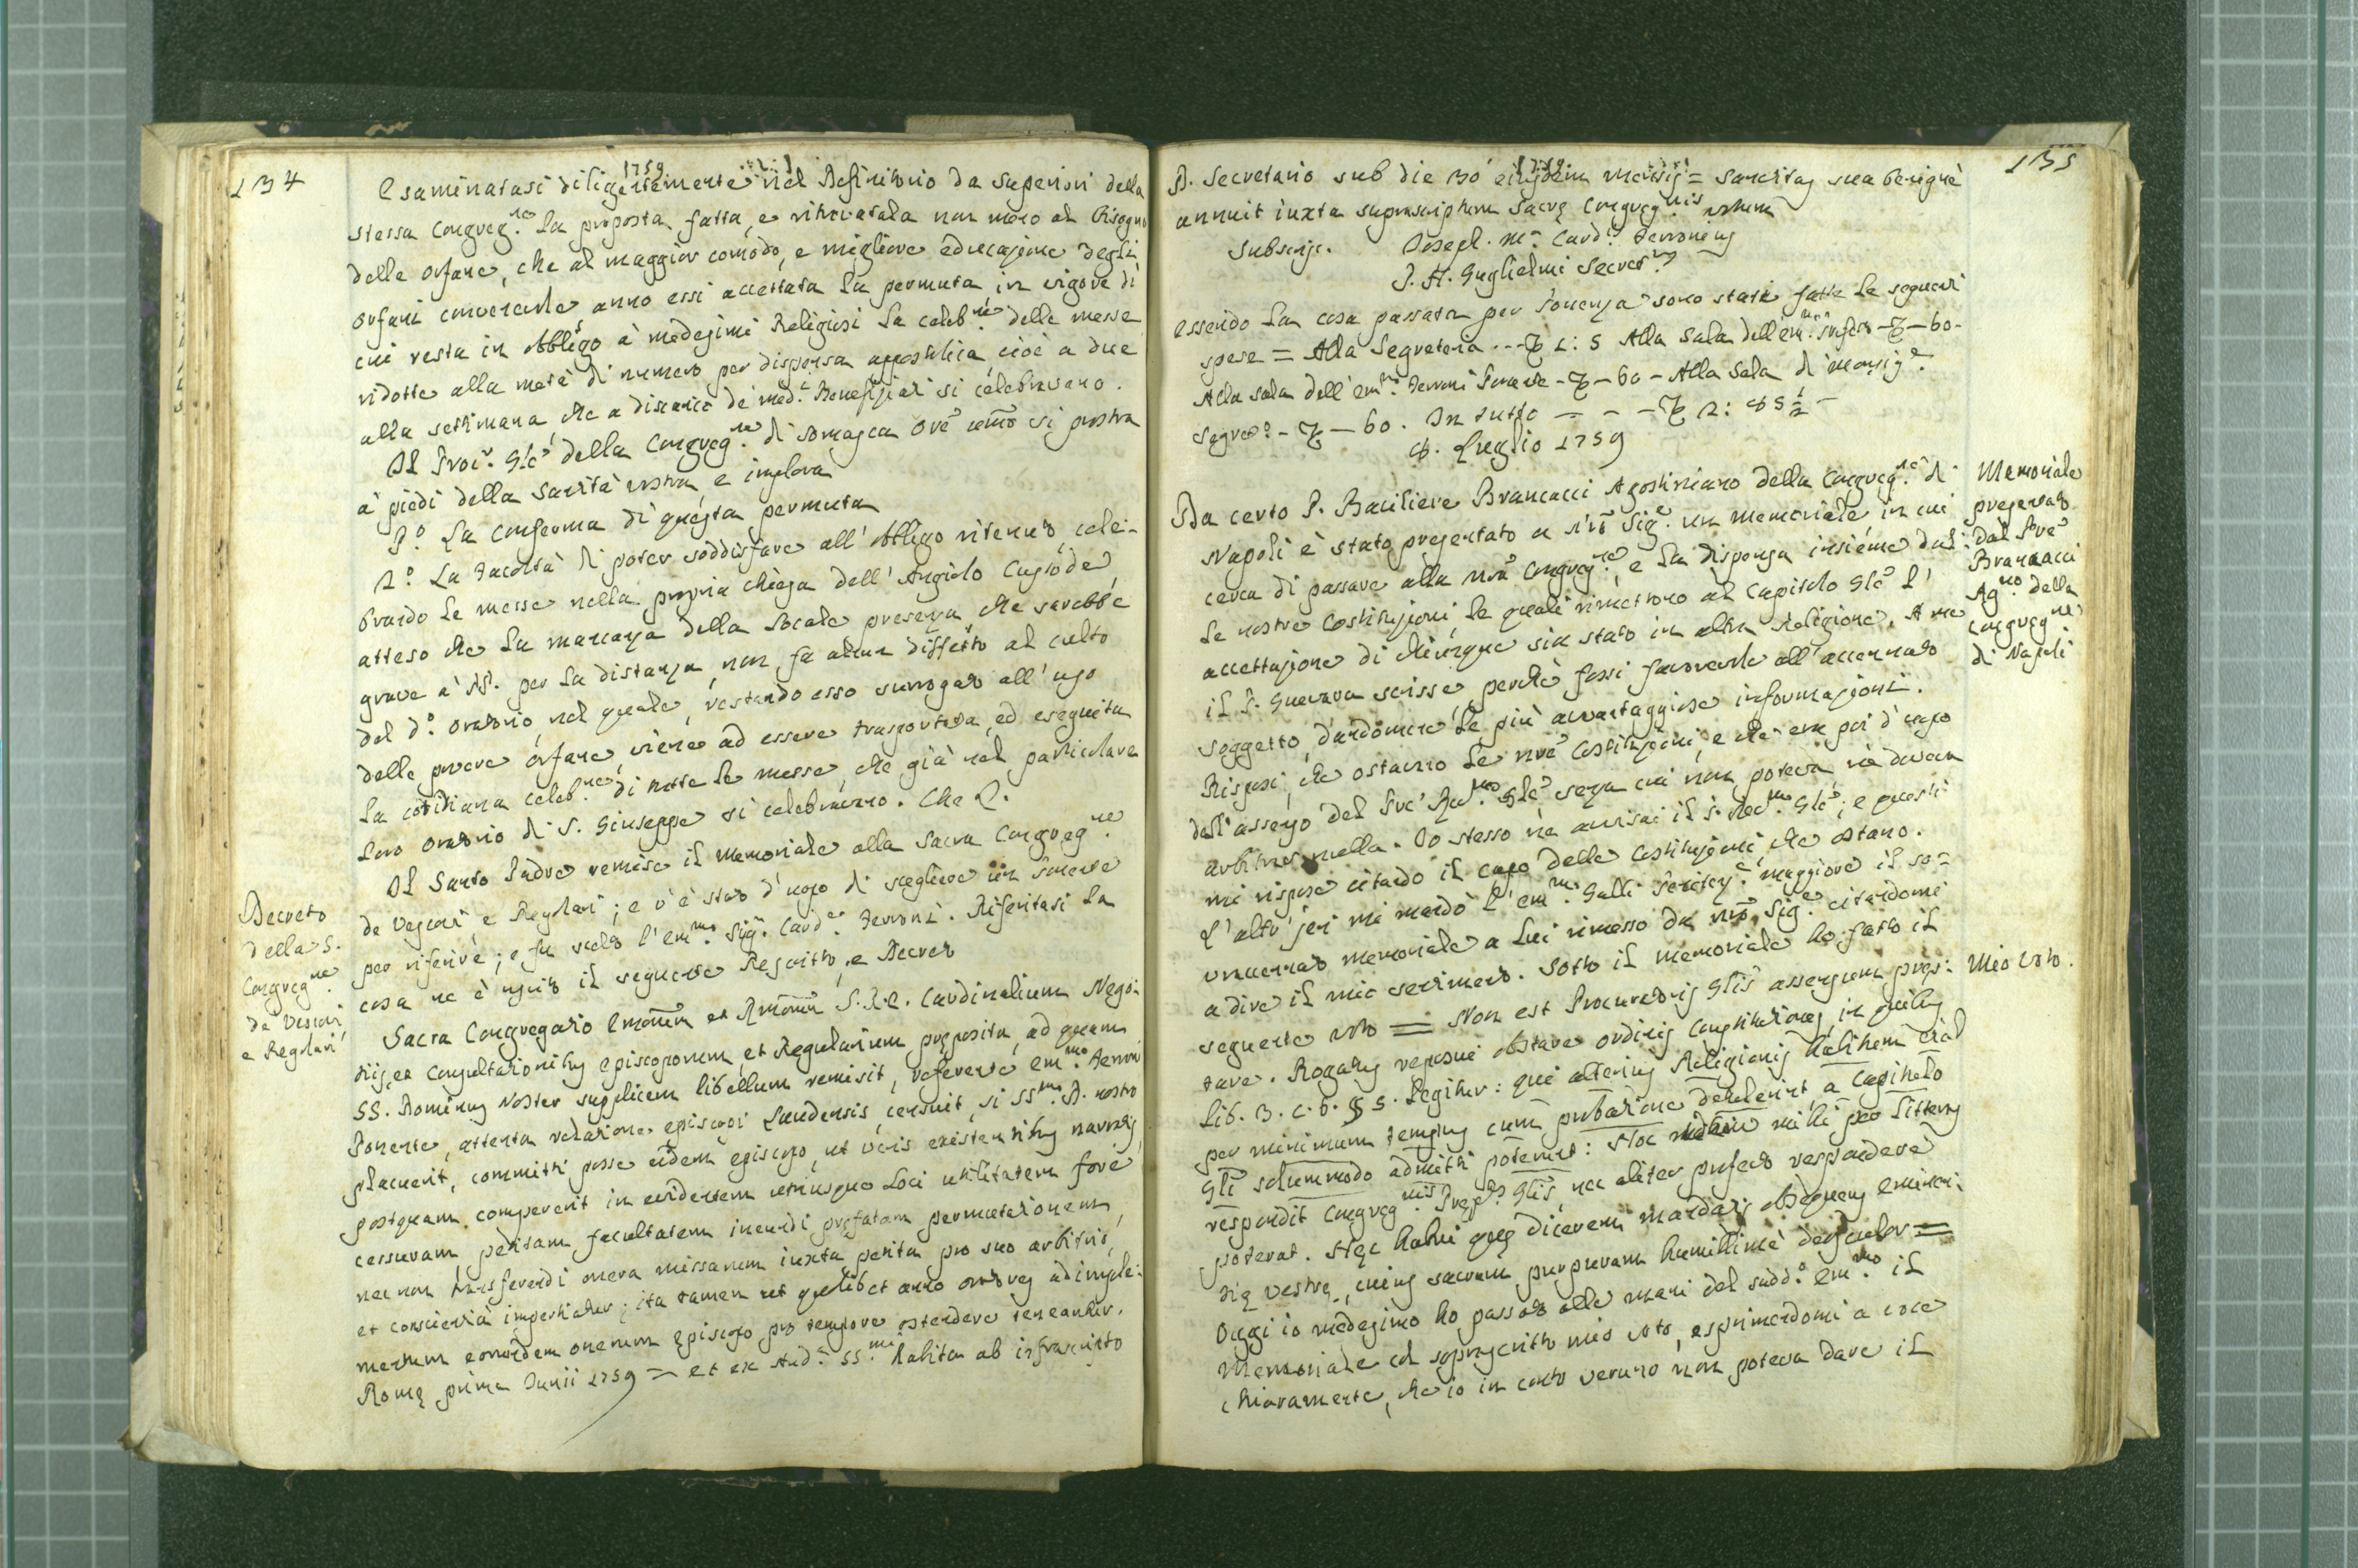 134
1759
Esaminatasi diligentemente nel Definitorio da Superiori della
stessa Congreg.ne la proposta fatta, e ritrovatala non meno al bisogno
delle orfane, che al maggior comodo, e migliore educazione degli
orfani conveniente, anno essi accettata la permuta in vigore di
cui resta in obbligo a' medesimi Religiosi la celeb.ne delle messe
ridotte alla metà di numero per dispensa appostolica, cioè a due
alla settimana che a discarico de' med.i Benefiziati si celebravano.
Il Proc.r Gle della Congreg.ne di Somasca Ore umo si prostra
a' piedi della Santità vostra, e implora
P.o La conferma di questa permuta
2.o La Facoltà di poter soddisfare all' obbligo ritenuto, cele-
brando le messe nella propria chiesa dell' Angiolo Custode,
atteso che la mancanza della locale presenza, che sarebbe
grave a' PP. per la distanza, non fa alcun diffetto al culto
del d.o oratorio, nel quale, restando esso surrogato all' uso
delle povere orfane, viene ad essere trasportata, ed eseguita
la cotidiana celeb.ne di tutte le messe, che già nel particolare
loro oratorio di S. Giuseppe si celebravano. Che &.
Il Santo Padre remise il memoriale alla Sacra Congreg.ne
de Vescovi, e Regolari; e v'è stato d'uopo di scegliere un Ponente
per riferire; e fu scelto l'Em.mo Sig.r Card.e Ferroni. Riferitasi la
cosa ne è uscito il seguente Rescritto, e Decreto
Decreto
della S.
Congreg.ne
de Vescovi
e Regolari
Sacra Congregatio Emorum et Rmorum S.R.E. Cardinalium Nego-
tiis, et Consultationibus Episcoporum, et Regularium pręposita, ad quam
SS. Dominus Noster supplicem libellum remisit, referente Em.mo Ferroni
Ponente, attenta relatione Episcopi Laudensis, censuit, si SS.mo D. nostro
placuerit, committi posse eidem Episcopo, ut veris existentibus narratis,
postquam compererit in evidentem utriusque Loci utilitatem fore
cessuram, petitam facultatem ineundi pręfatam permutationem,
nec non transferendi onera missarum iuxta petita pro suo arbitrio,
et conscientia impertiatur; ita tamen ut quolibet anno oratores adimple-
mentum eorundem onerum Episcopo pro tempore ostendere teneantur.
Romę prima Junii 1759 = et ex Aud.a SS.mi habita ab infrascripto
135
1759
D. Secretario sub die 30 eiusdem mensis = Sanctitas sua benignè
annuit iuxta suprascriptum Sacrę Congreg.nis votum
Subscrip. Joseph. M.a Card.s Ferronius
J. A. Guglielmi Secret.s
Essendo la cosa passata per Ponenza sono state fatte le seguenti
spese = Alla Segreteria 1: 5 Alla Sala dell' Em.mo Prefetto - 60 -
Alla sala dell' Em.mo Ferroni Ponente - 60 - Alla Sala di Monsig.r
Segret.o - 60. In tutto 2: 85 ½ -
8. Luglio 1759
Memoriale
presentato
dal Pre
Brancacci
Ag.no della
Congreg.ne
di Napoli
Da certo P. Basiliere Brancacci Agostiniano della Congreg.ne di
Napoli è stato presentato a N'ro Sig.e un memoriale in cui
cerca di passare alla nrã Congreg.ne, e la dispensa insieme dal-
le nostre Costituzioni le quali rimettono al Capitolo Gle l'
accettazione di chiunque sia stato in altra Religione. A me
il P. Guevara scrisse, perchè fossi favorevole all' accennato
soggetto, dandomene le più avvantaggiose informazioni.
Risposi, che ostavano le nre Costituzioni, e che era poi d'uopo
dell' assenso del Pre Rev.mo Gle senza cui non poteva nè doveva
arbitrar nulla. Io stesso ne avvisai il P. Rev.mo Gle; e questi
mi rispose citando il capo delle Costituzioni che ostano.
L'altr' jeri mi mandò l'Em.mo Galli Penitenz.e maggiore il so-
vraccennato memoriale a lui rimesso da nrõ Sig.e citandomi
a dire il mio sentimento. Sotto il memoriale ho fatto il
Mio voto.
seguente voto = Non est Procuratoris Glis assensum pręs-
tare. Rogatus reposui obstare ordinis Constitutiones, in quibus
Lib. 3. c. 6. § 5. Legitur: qui alterius Religionis habitum etiam
per minimum tempus cum probatione detulerint, a Capitulo
Gli solummodo admitti poterint: Hoc mihi per litteras
respondit Congreg.nis Pręp.tus Glis, nec aliter profecto respondere
poterat. Hęc habui quę dicerem mandatis obsequens Eminen-
tię Vestrę, cuius sacram purpuram humillimè deosculor =
Oggi io medesimo ho passato alle mani del sudd.o Em.mo il
memoriale col soprascritto mio voto, esprimendomi a voce
chiaramente, che io in conto veruno non poteva dare il